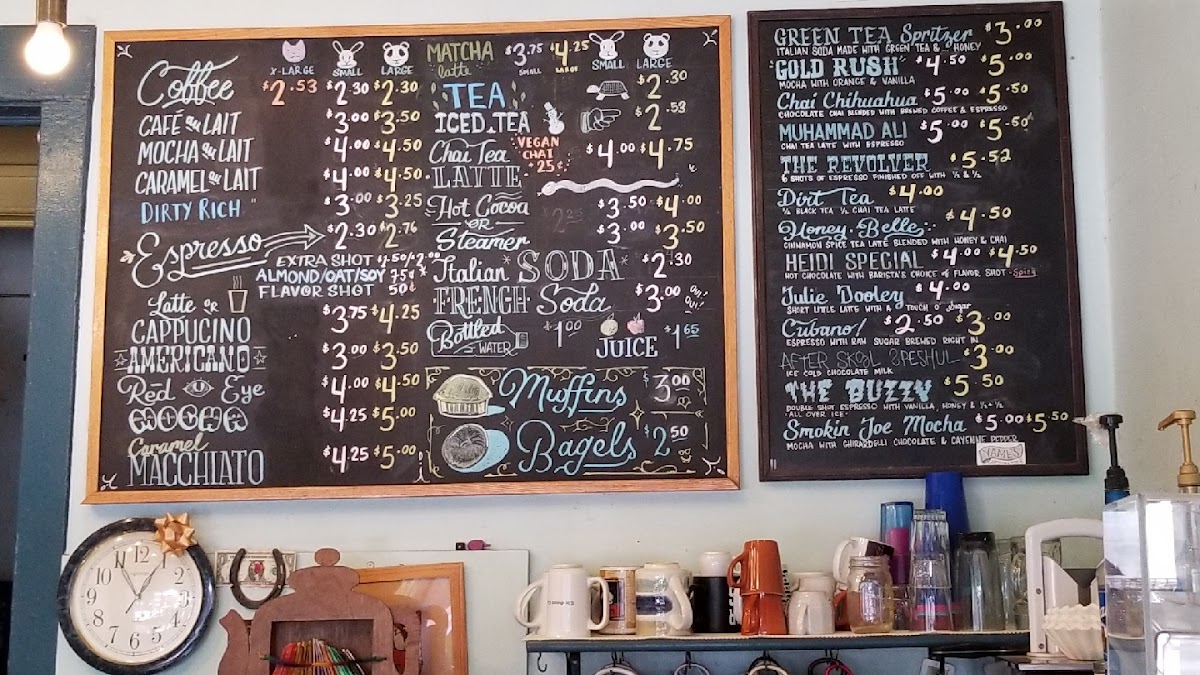 X-LARGE SMALL LARGE
Coffee $2.53 $2.30 $2.30
CAFÉ au LAIT $3.00 $3.50
MOCHA au LAIT $4.00 $4.50
CARAMEL au LAIT $4.00 $4.50
"DIRTY RICH" $3.00 $3.25
Espresso $2.30 $2.76
EXTRA SHOT
ALMOND/OAT/SOY 75¢
FLAVOR SHOT 50¢
Latte OR
CAPPUCINO $3.75 $4.25
AMERICANO $3.00 $3.50
Red Eye $4.00 $4.50
MOCHA $4.25 $5.00
Caramel
MACCHIATO $4.25 $5.00
MATCHA latte $3.75 SMALL $4.25 LARGE
SMALL LARGE
TEA $2.30
ICED TEA $2.53
Chai Tea
LATTE $4.00 $4.75
VEGAN
CHAI
+25¢
Hot Cocoa $3.50 $4.00
OR
Steamer $3.00 $3.50
Italian SODA $2.30
FRENCH Soda $3.00 OUI! OUI!
Bottled WATER $1.00 JUICE $1.65
Muffins $3.00
Bagels $2.50
GREEN TEA Spritzer $3.00
ITALIAN SODA MADE WITH GREEN TEA & HONEY
"GOLD RUSH" $4.50 $5.00
MOCHA WITH ORANGE & VANILLA
Chai Chihuahua $5.00 $5.50
CHOCOLATE CHAI BLENDED WITH BREWED COFFEE & ESPRESSO
MUHAMMAD ALI $5.00 $5.50
CHAI TEA LATTE WITH ESPRESSO
THE REVOLVER $5.52
6 SHOTS OF ESPRESSO FINISHED OFF WITH ½ & ½
Dirt Tea $4.00
½ BLACK TEA ½ CHAI TEA LATTE
Honey Belle $4.50
CINNAMON SPICE TEA LATE BLENDED WITH HONEY & CHAI
HEIDI SPECIAL $4.00 $4.50
HOT CHOCOLATE WITH BARISTA'S CHOICE of FLAVOR SHOT
Julie Dooley $4.00
SHORT LITTLE LATTE WITH A TOUCH O' Sugar
Cubano! $2.50 $3.00
ESPRESSO WITH RAW SUGAR BREWED RIGHT IN
AFTER SKOOL SPESHUL $3.00
ICE COLD CHOCOLATE MILK
THE BUZZY $5.50
DOUBLE SHOT ESPRESSO WITH VANILLA, HONEY & ½ + ½
"ALL OVER ICE"
Smokin' Joe Mocha $5.00 $5.50
MOCHA WITH GHIRARDELLI CHOCOLATE & CAYENNE PEPPER
12
1
2
3
4
5
6
7
8
9
10
11